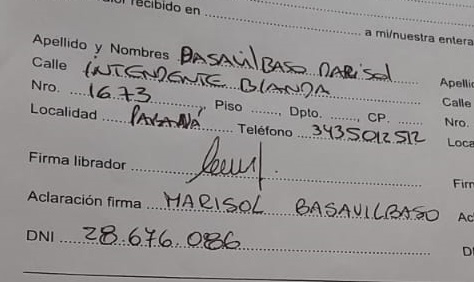 recibido en
a mi/nuestra entera
Apellido y Nombres BASAVILBASO MARISOL Apelli
Calle INTENDENTE BIANDA Calle
Nro. 1673, Piso ......., Dpto. ......., CP. ....... Nro.
Localidad PARANÁ Teléfono 3435012512 Loca
Firma librador Firm
Aclaración firma MARISOL BASAVILBASO Ac
DNI 28.676.086 D